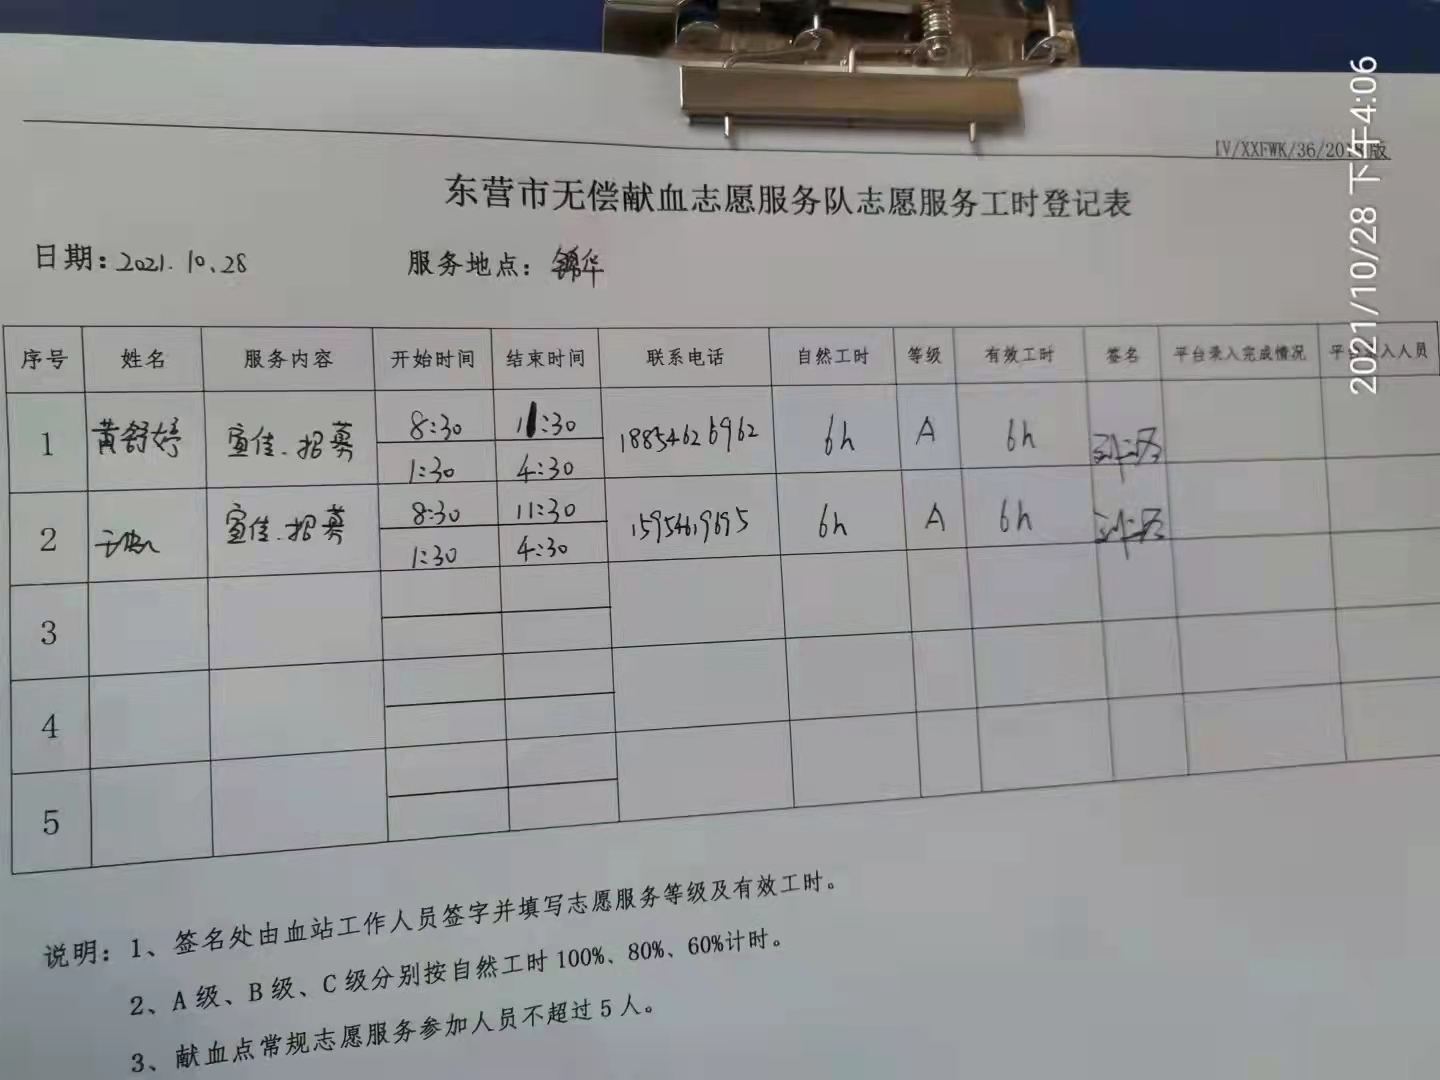 IV/XXFWK/36/20 版
东营市无偿献血志愿服务队志愿服务工时登记表
日期: 2021.10.28 服务地点: 锦华
序号 姓名 服务内容 开始时间 结束时间 联系电话 自然工时 等级 有效工时 签名 平台录入完成情况 平台 入人员
1 黄舒婷 宣传.招募 8:30 11:30 18854626962 6h A 6h
1:30 4:30
2 宣传.招募 8:30 11:30 15954619695 6h A 6h
1:30 4:30
3
4
5
说明: 1、签名处由血站工作人员签字并填写志愿服务等级及有效工时。
2、A级、B级、C级分别按自然工时100%、80%、60%计时。
3、献血点常规志愿服务参加人员不超过5人。
2021/10/28 下午4:06